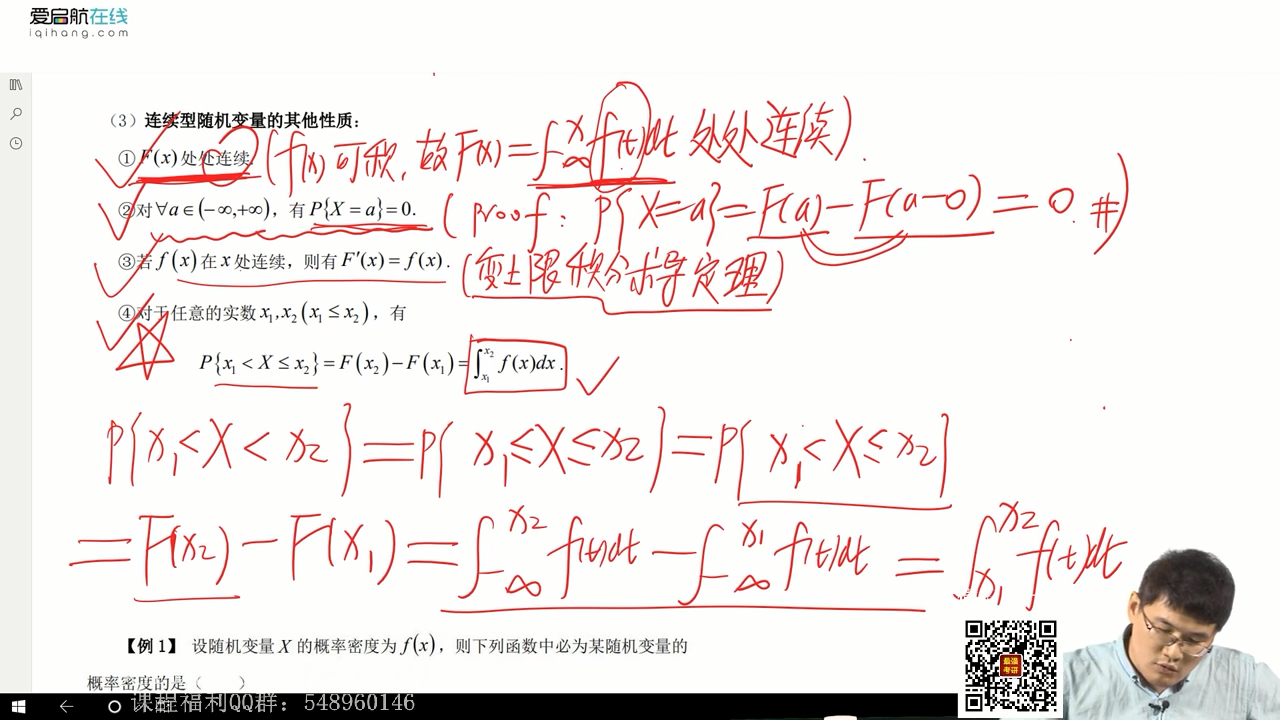 爱启航在线
iqihang.com
（3）连续型随机变量的其他性质：
①F(x)处处连续. (f(x)可积，故F(x)=∫_{-∞}^{x} f(t)dt 处处连续).
②对∀a∈(-∞,+∞)，有P{X=a}=0. (proof: P{X=a}=F(a)-F(a-0)=0. #)
③若f(x)在x处连续，则有F′(x)=f(x). (变上限积分求导定理)
④对于任意的实数x₁,x₂(x₁≤x₂)，有
P{x₁<X≤x₂}=F(x₂)-F(x₁)=∫_{x₁}^{x₂} f(x)dx.
P{x₁<X<x₂}=P{x₁≤X≤x₂}=P{x₁<X≤x₂}
=F(x₂)-F(x₁)=∫_{-∞}^{x₂} f(t)dt-∫_{-∞}^{x₁} f(t)dt=∫_{x₁}^{x₂} f(t)dt
【例1】 设随机变量X的概率密度为f(x)，则下列函数中必为某随机变量的
概率密度的是（ ）
最强考研
课程福利QQ群：548960146